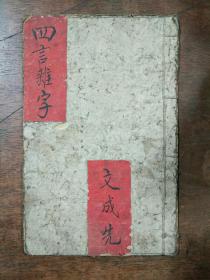 四言雜字
文成先